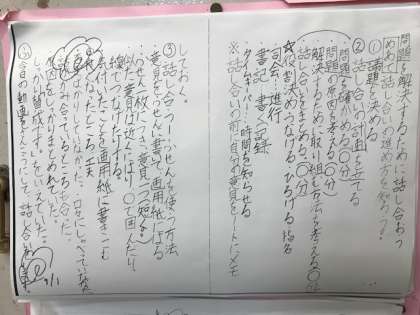 問題を解決するために話し合おう
めあて 話し合いの進め方を知ろう。
①議題を決める
②話し合いの計画を立てる
問題を確かめる(○分)
問題の原因を考える(○分)
解決するために取り組む方法を考える(○分)
話し合いをまとめる(○分)
☆役割決め つなげる ひろげる 指名
司会…進行
書記…書く 記録
タイムキーパー…時間を知らせる
※話し合いの前に自分の意見をノートにメモ
しておく。
③話し合う…ふせんを使う方法
意見をふせんに書いて画用紙にはる
(ふせん1枚につき、意見1つ
にた意見は近くにはり○で囲んだり
線でつなげたりする。
気付いたことを画用紙に書きこむ
よかったところ・工夫
話がそれていなかった。
話が合っているところを
原因をしっかりまとめれていた。
しっかり賛成ですといえていた。
④
9/1